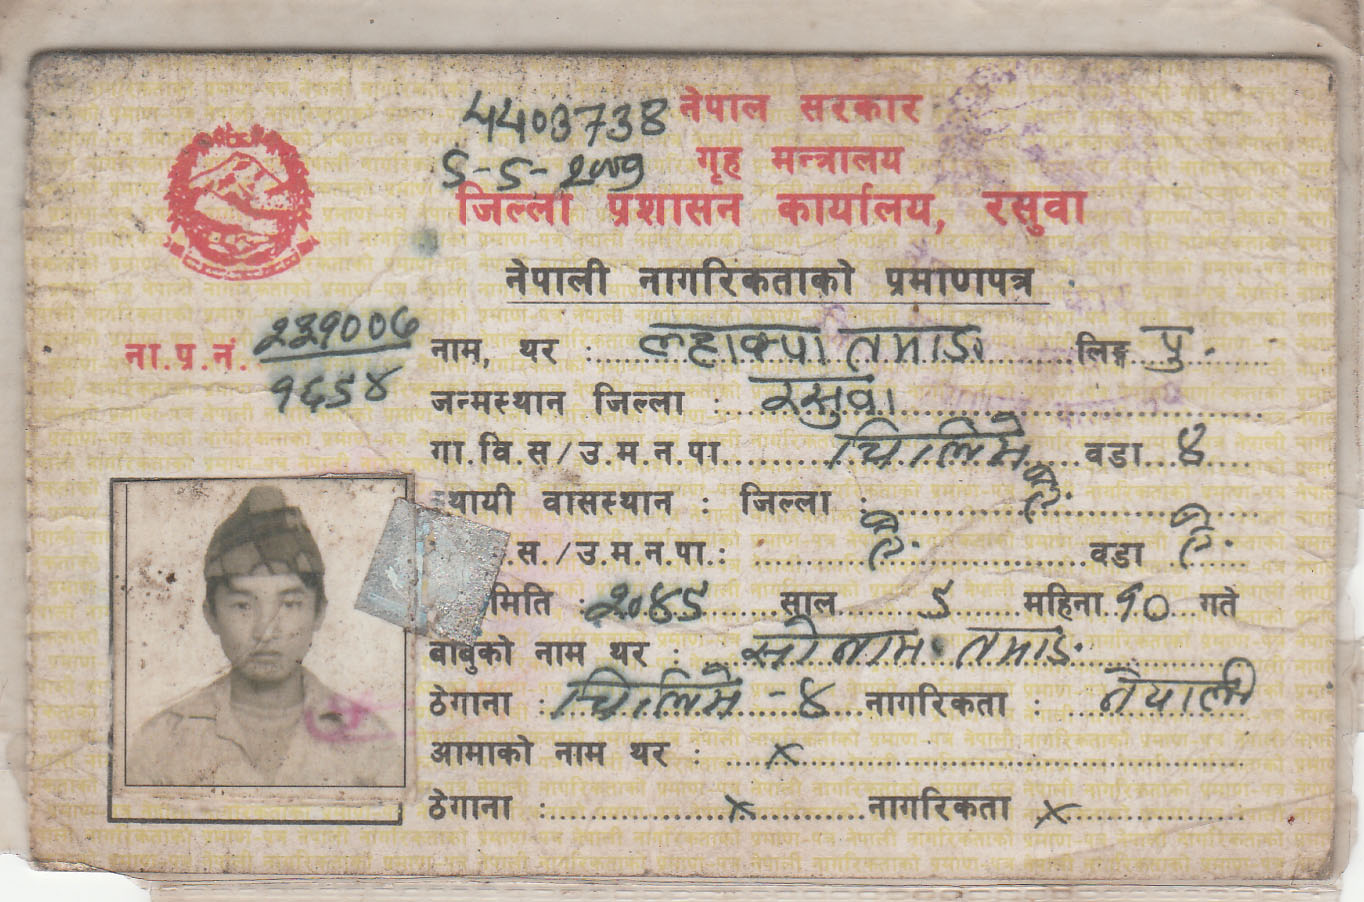 4403738 नेपाल सरकार
5-5-2009 गृह मन्त्रालय
जिल्ला प्रशासन कार्यालय, रसुवा
नेपाली नागरिकताको प्रमाणपत्र
ना.प्र.नं. २२१००६
१६५४
नाम, थर : ल्हाक्पा तमाङ लिङ्ग पु.
जन्मस्थान जिल्ला : रसुवा
गा.वि.स/उ.म.न.पा चिलिमे वडा ४
स्थायी वासस्थान : जिल्ला : ऐ.
.स./उ.म.न.पा.: ऐ. वडा ऐ.
मिति : २०४५ साल ५ महिना १० गते
बाबुको नाम थर : सोनाम तमाङ
ठेगाना : चिलिमे - ४ नागरिकता : नेपाली
आमाको नाम थर : x
ठेगाना : x नागरिकता x